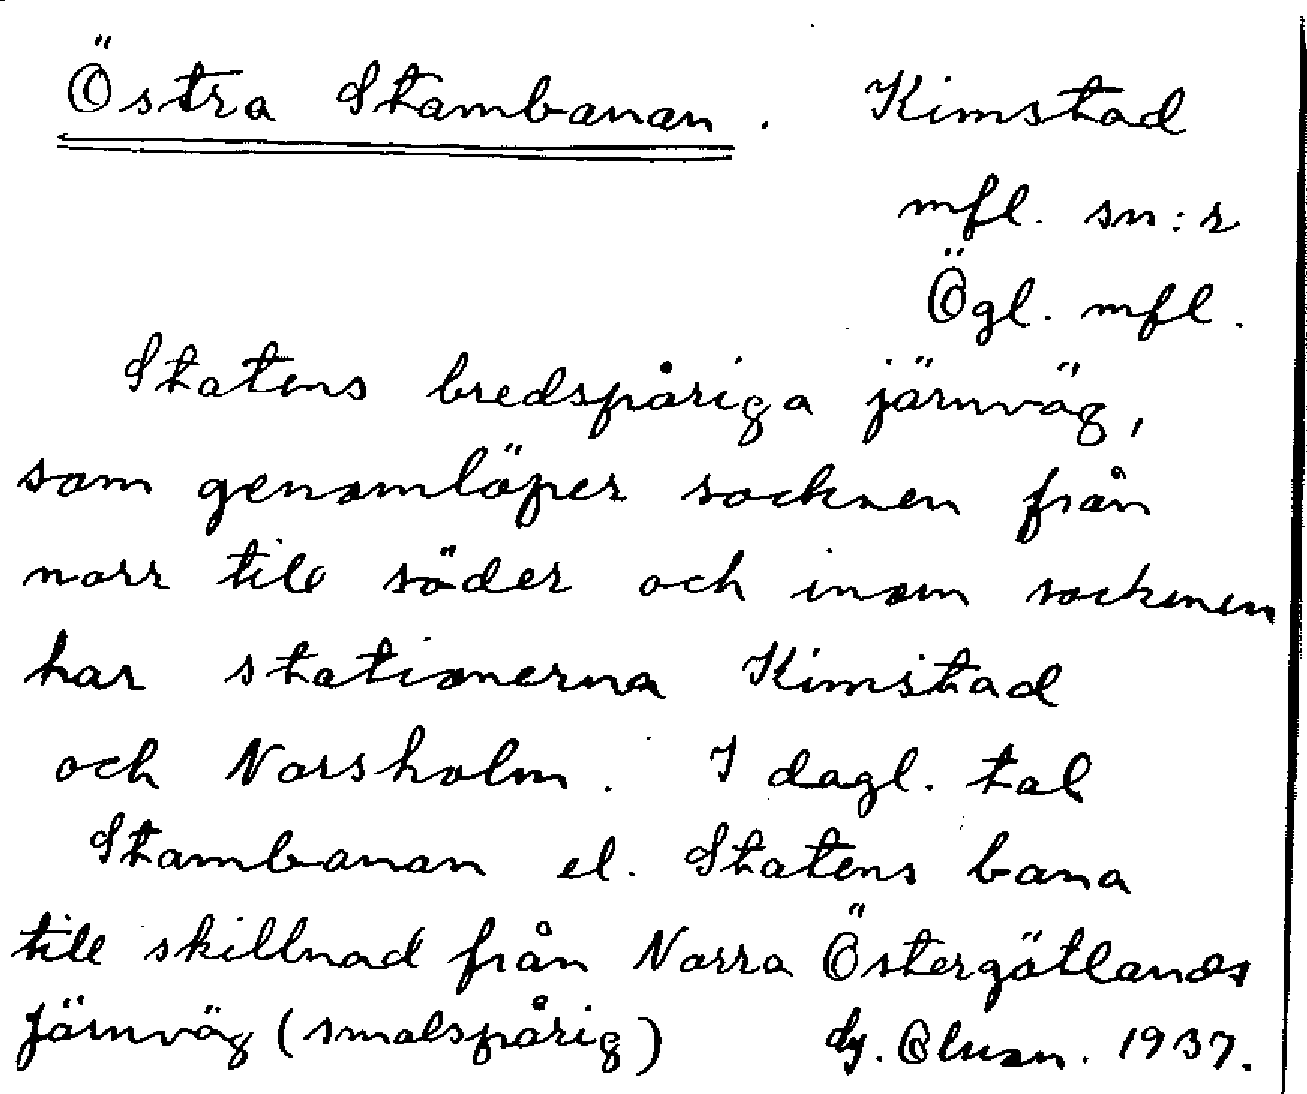 Östra Stambanan. Kimstad
mfl. sn:r
Ögl. mfl.
Statens bredspåriga järnväg,
som genomlöper socknen från
norr till söder och inom socknen
har stationerna Kimstad
och Norsholm. I dagl. tal
Stambanan el. Statens bana
till skillnad från Norra Östergötlands
Järnväg (smalspårig) 1937.